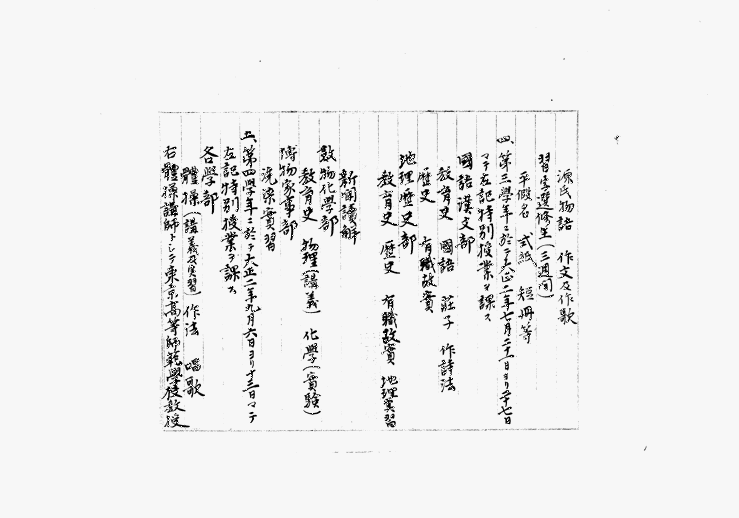 源氏物語　作文及作歌
習字選修生(三週間)
平假名　式紙、短冊等
四、第三學年ニ於テ大正二年七月二十一日ヨリ二十七日
マデ左記特別授業ヲ課ス
國語漢文部
教育史　國語　莊子　作詩法
歷史　有職故實
地理歷史部
教育史　歷史　有職故實　地理實習
新聞讀解
數物化學部
教育史　物理(講義)　化學(實驗)
博物家事部
洗染實習
五、第四學年ニ於テ大正二年九月六日ヨリ十三日マデ
左記特別授業ヲ課ス
各學部
體操(講義及實習)　作法　唱歌
右體操講師トシテ東京高等師範學校教授